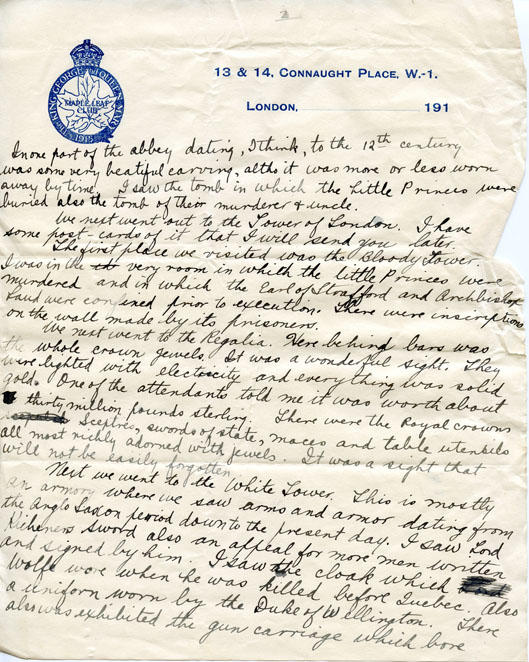 2
KING GEORGE AND QUEEN MARY
MAPLE LEAF
CLUB
1915
13 & 14, CONNAUGHT PLACE, W.-1.
LONDON, 191
In one part of the abbey dating, I think, to the 12th century
was some very beatiful carving, altho it was more or less worn
away by time. I saw the tomb in which the little Princes were
buried also the tomb of their murderer & uncle.
We next went out to the Tower of London. I have
some post-cards of it that I will send you later.
The first place we visited was the Bloody Tower.
I was in the very room in which the little Princes were
murdered and in which the Earl of Strafford and Archbishop
Laud were confined prior to execution. There were inscriptions
on the wall made by its prisoners.
We next went to the Regalia. Here behind bars was
the whole crown jewels. It was a wonderful sight. They
were lighted with electricity and everything was solid
gold. One of the attendants told me it was worth about
thirty million pounds sterling. There were the Royal crowns
Sceptres, swords of state, maces and table utensils
all most richly adorned with jewels. It was a sight that
will not be easily forgotten.
Next we went to the White Tower. This is mostly
an armory where we saw arms and armor dating from
the Anglo Saxon period down to the present day. I saw Lord
Kicheners sword also an appeal for more men written
and signed by him. I saw the cloak which
Wolfe wore when he was killed before Quebec. Also
a uniform worn by the Duke of Wellington. There
also was exhibited the gun carriage which bore